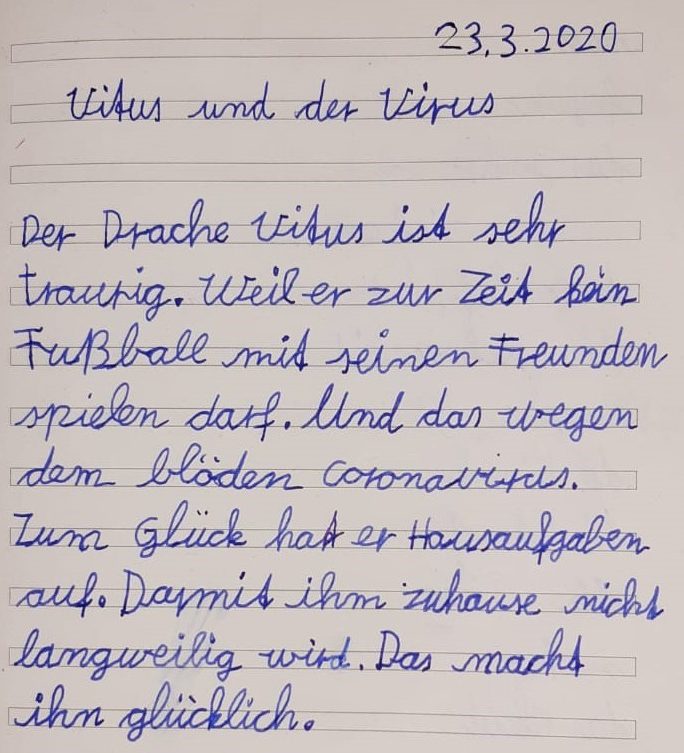 23.3.2020
Vitus und der Virus
Der Drache Vitus ist sehr
traurig. Weil er zur Zeit kein
Fußball mit seinen Freunden
spielen darf. Und das wegen
dem blöden Coronavirus.
Zum Glück hat er Hausaufgaben
auf. Darmit ihm zuhause nicht
langweilig wird. Das macht
ihn glücklich.